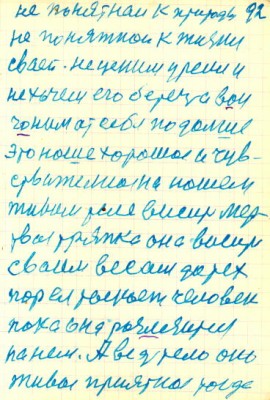 не понятнам к природы 92
не понятной к жизни
своей. не ценим время и
не хочем его беречь вои
чоним от себя подольше
это наше хорошое и чув-
ствительноя на нашем
живом теле висит мер-
твоя тряпка она висит
своим весом до тех
пор ея таскает человек
пока она
на нем. А ведь тело оно
живое приятное тогда